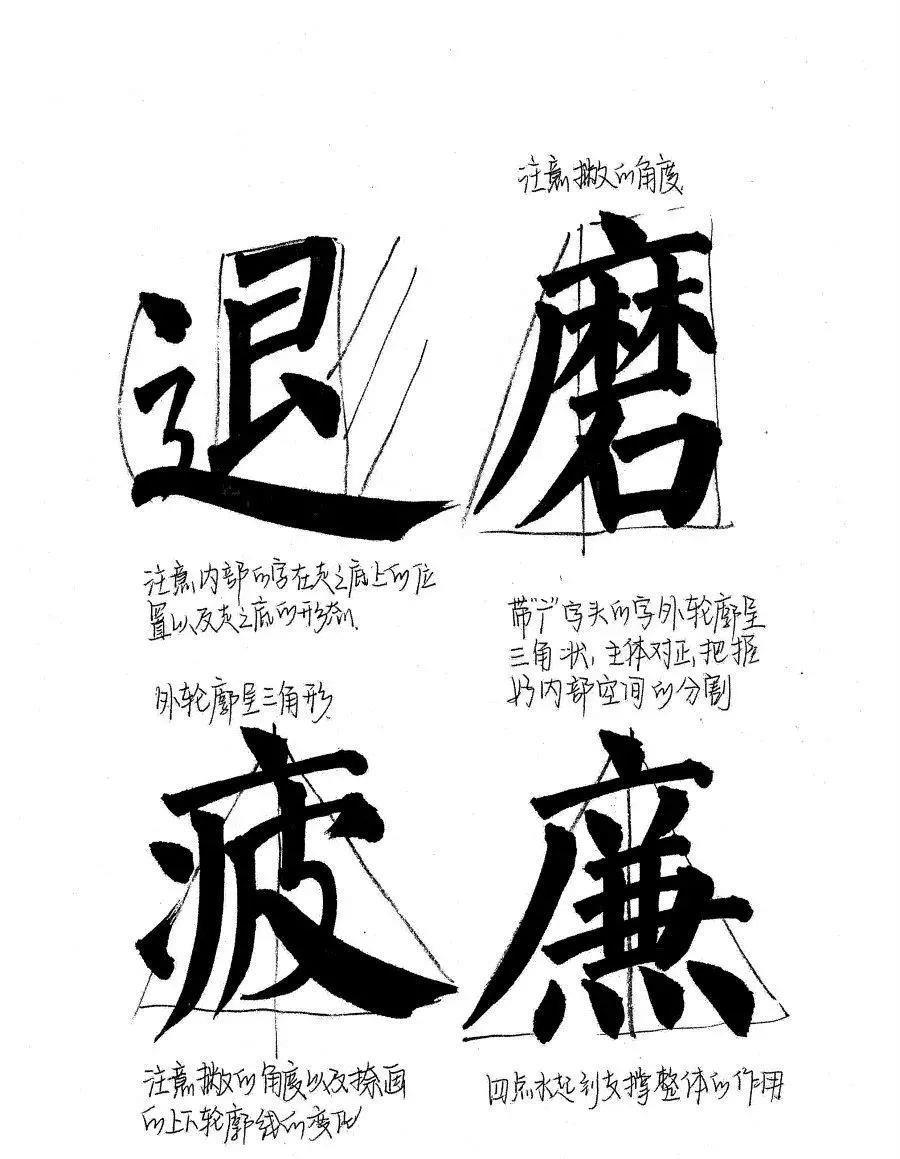 注意撇的角度
退
磨
注意内部的字在走之底上的位
置以及走之底的形态
带"广"字头的字外轮廓呈
三角状,主体对正,把握
好内部空间的分割
外轮廓呈三角形
疲
廉
注意撇的角度以及捺画
的上下轮廓线的变化
四点水起到支撑整体的作用